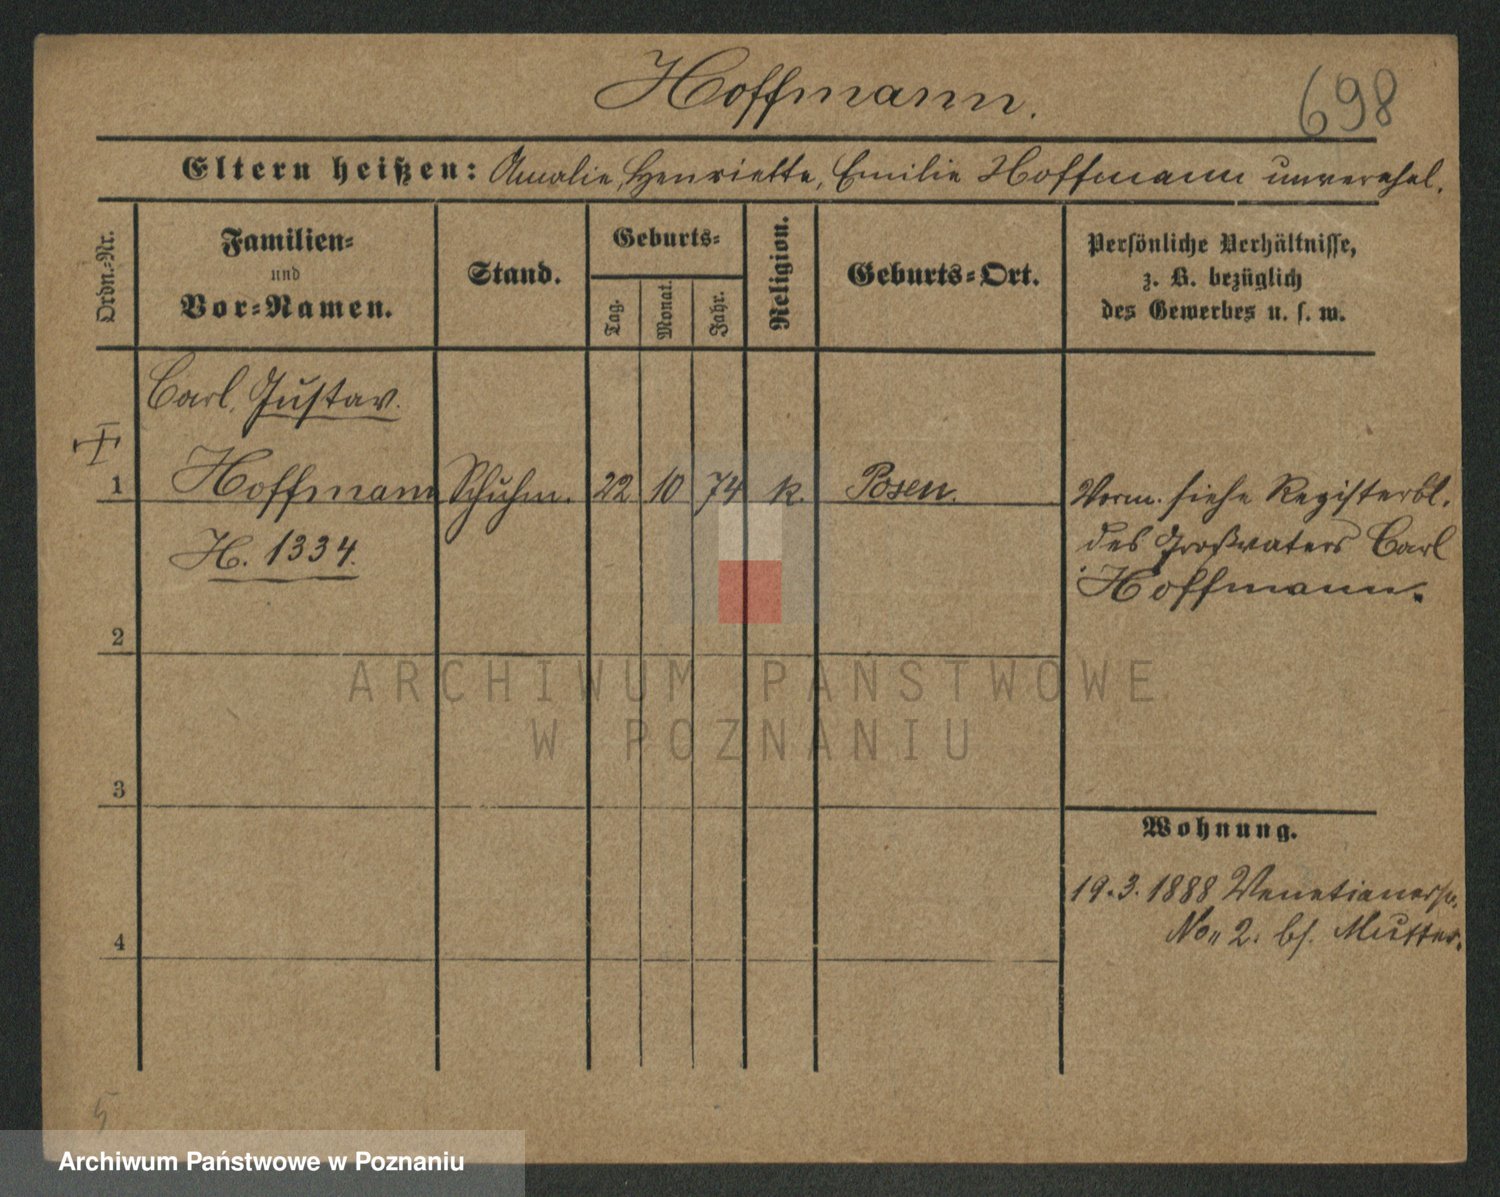 Hoffmann.
698
Eltern heißen: Amalie, Henriette, Emilie Hoffmann unverehel.
Ordn.-Nr.
Familien-
und
Vor-Namen.
Stand.
Geburts-
Tag.
Monat.
Jahr.
Religion.
Geburts-Ort.
Persönliche Verhältnisse,
z. B. bezüglich
des Gewerbes u. s. w.
Carl, Gustav.
1 Hoffmann Schuhm. 22 10 74 k. Posen. Verm. siehe Registerbl.
H. 1334.
des Großvaters Carl
Hoffmann.
2
3
4
Wohnung.
19.3.1888 Venetianerstr.
No. 2. bs. Mutter.
5
ARCHIWUM PAŃSTWOWE
W POZNANIU
Archiwum Państwowe w Poznaniu